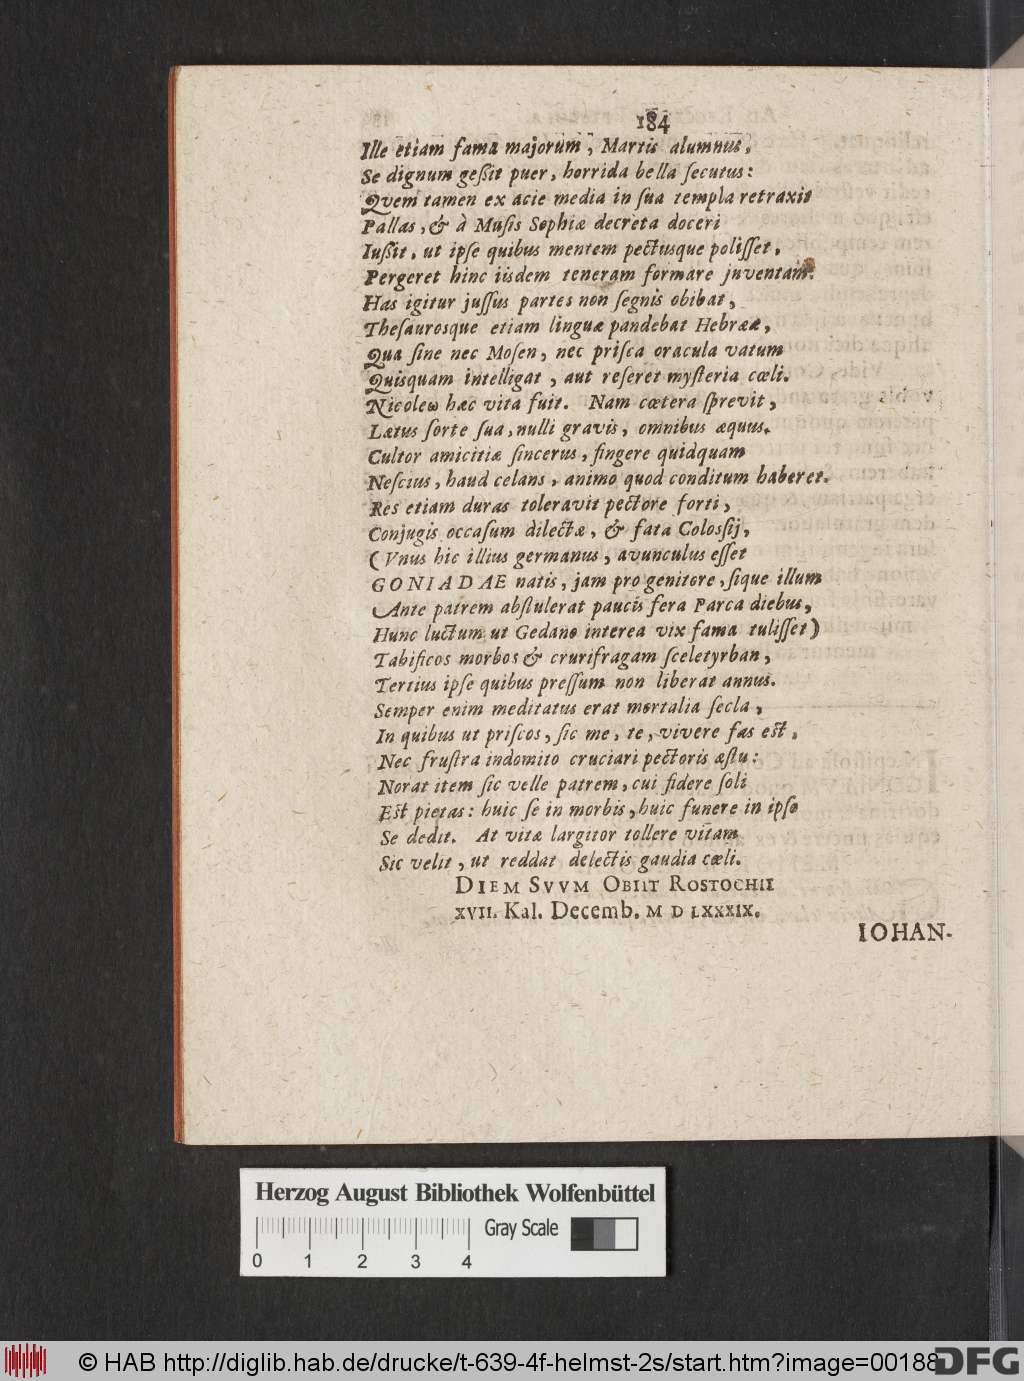 184
Ille etiam fama majorum, Martis alumnus,
Se dignum geßit puer, horrida bella ſecutus:
Quem tamen ex acie media in ſua templa retraxit
Pallas, & à Muſis Sophiæ decreta doceri
Iußit, ut ipſe quibus mentem pectusque poliſſet,
Pergeret hinc iisdem teneram formare juventam.
Has igitur juſſus partes non ſegnis obibat,
Theſaurosque etiam linguæ pandebat Hebrææ,
Qua ſine nec Moſen, nec priſca oracula vatum
Quisquam intelligat, aut reſeret myſteria cœli.
Nicoleω hæc vita fuit. Nam cœtera ſprevit,
Lætus ſorte ſua, nulli gravis, omnibus æquus.
Cultor amicitiæ ſincerus, fingere quidquam
Neſcius, haud celans, animo quod conditum haberet.
Res etiam duras toleravit pectore forti,
Conjugis occaſum dilectæ, & fata Coloſſij,
(Vnus hic illius germanus, avunculus eſſet
GONIADAE natis, jam pro genitore, ſique illum
Ante patrem abſtulerat paucis fera Parca diebus,
Hunc luctum ut Gedano interea vix fama tuliſſet)
Tabificos morbos & crurifragam ſceletyrban,
Tertius ipſe quibus preſſum non liberat annus.
Semper enim meditatus erat mortalia ſecla,
In quibus ut priſcos, ſic me, te, vivere fas eſt,
Nec fruſtra indomito cruciari pectoris æſtu:
Norat item ſic velle patrem, cui fidere ſoli
Eſt pietas: huic ſe in morbis, huic funere in ipſo
Se dedit. At vitæ largitor tollere vitam
Sic velit, ut reddat delectis gaudia cœli.
DIEM SVVM OBIIT ROSTOCHII
XVII. Kal. Decemb. M D LXXXIX.
IOHAN-
Herzog August Bibliothek Wolfenbüttel
Gray Scale
0 1 2 3 4
© HAB http://diglib.hab.de/drucke/t-639-4f-helmst-2s/start.htm?image=00188
DFG